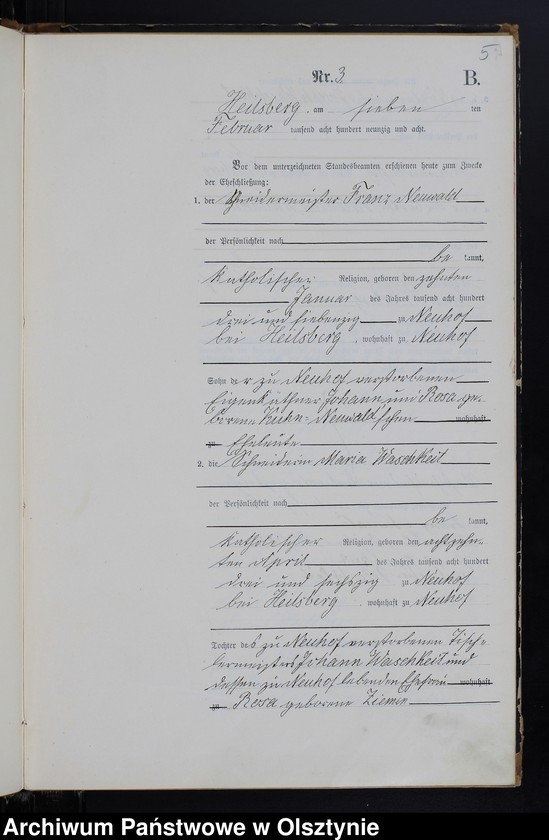 5
Nr. 3
B.
Heilsberg, am sieben ten
Februar tausend acht hundert neunzig und acht.
Vor dem unterzeichneten Standesbeamten erschienen heute zum Zwecke
der Eheschließung:
1. der Schneidermeister Franz Neuwald
der Persönlichkeit nach
be kannt,
katholischer Religion, geboren den zehnten
Januar des Jahres tausend acht hundert
drei und siebenzig zu Neuhof
bei Heilsberg, wohnhaft zu Neuhof
Sohn der zu Neuhof verstorbenen
Eigenkäthner Johann und Rosa ge-
borene Kuhn-Neuwald'schen wohnhaft
zu Eheleute
2. die Schneiderin Maria Waschkeit
der Persönlichkeit nach
be kannt,
katholischer Religion, geboren den achtzehn-
ten April des Jahres tausend acht hundert
drei und sechszig zu Neuhof
bei Heilsberg, wohnhaft zu Neuhof
Tochter des zu Neuhof verstorbenen Tisch-
lermeisters Johann Waschkeit und
dessen zu Neuhof lebenden Ehefrau wohnhaft
zu Rosa geborene Ziemen
Archiwum Państwowe w Olsztynie